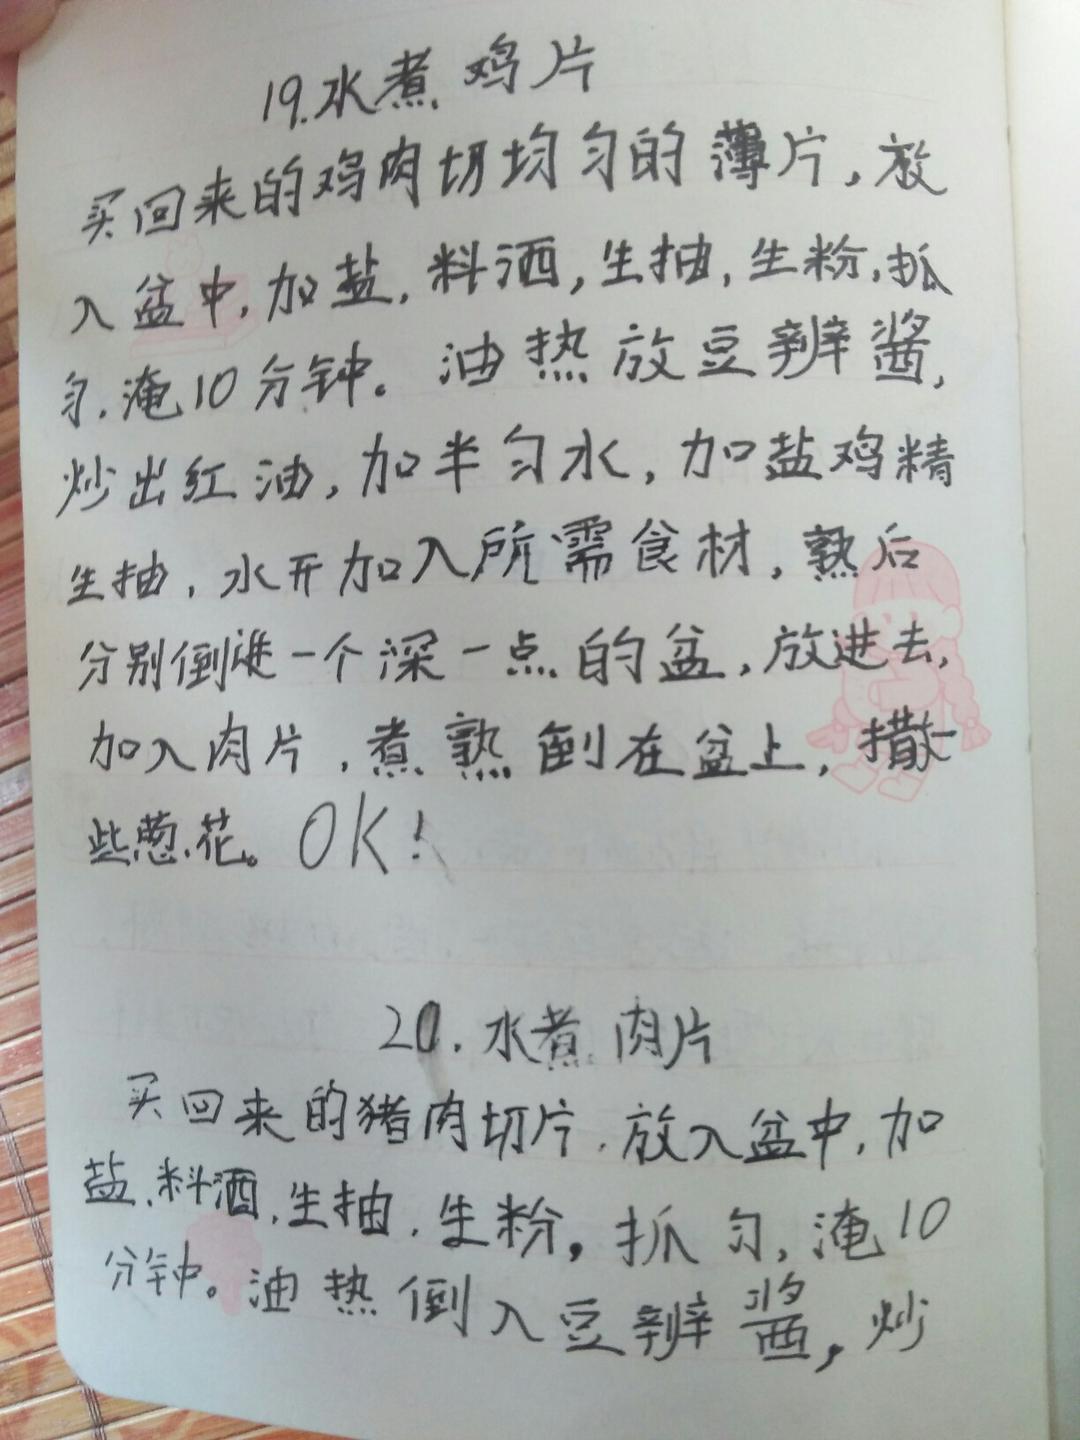 19.水煮鸡片
买回来的鸡肉切均匀的薄片,放
入盆中,加盐,料酒,生抽,生粉,抓
匀,淹10分钟。油热放豆辨酱,
炒出红油,加半匀水,加盐鸡精
生抽,水开加入所需食材,熟后
分别倒进一个深一点的盆,放进去,
加入肉片,煮熟倒在盆上,撒
些葱花。OK!
20.水煮肉片
买回来的猪肉切片,放入盆中,加
盐,料酒,生抽,生粉,抓匀,淹10
分钟。油热倒入豆辨酱,炒